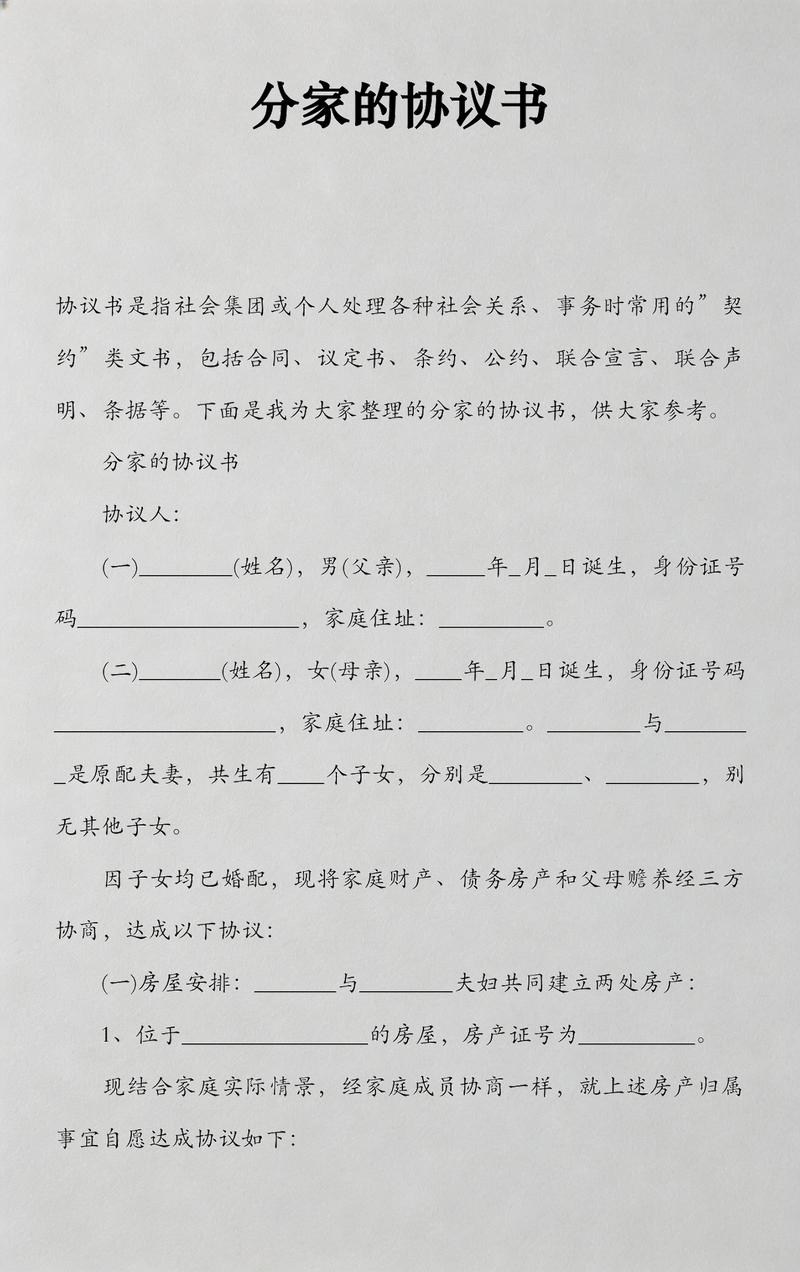 分家的协议书
协议书是指社会集团或个人处理各种社会关系、事务时常用的”契
约”类文书，包括合同、议定书、条约、公约、联合宣言、联合声
明、条据等。下面是我为大家整理的分家的协议书，供大家参考。
分家的协议书
协议人：
(一)________(姓名)，男(父亲)，_____年_月_日诞生，身份证号
码___________________，家庭住址：_________。
(二)_______(姓名)，女(母亲)，____年_月_日诞生，身份证号码
___________________，家庭住址：_________。________与_______
_是原配夫妻，共生有____个子女，分别是________、________，别
无其他子女。
因子女均已婚配，现将家庭财产、债务房产和父母赡养经三方
协商，达成以下协议：
(一)房屋安排：_______与________夫妇共同建立两处房产：
1、位于________________的房屋，房产证号为__________。
现结合家庭实际情景，经家庭成员协商一样，就上述房产归属
事宜自愿达成协议如下：